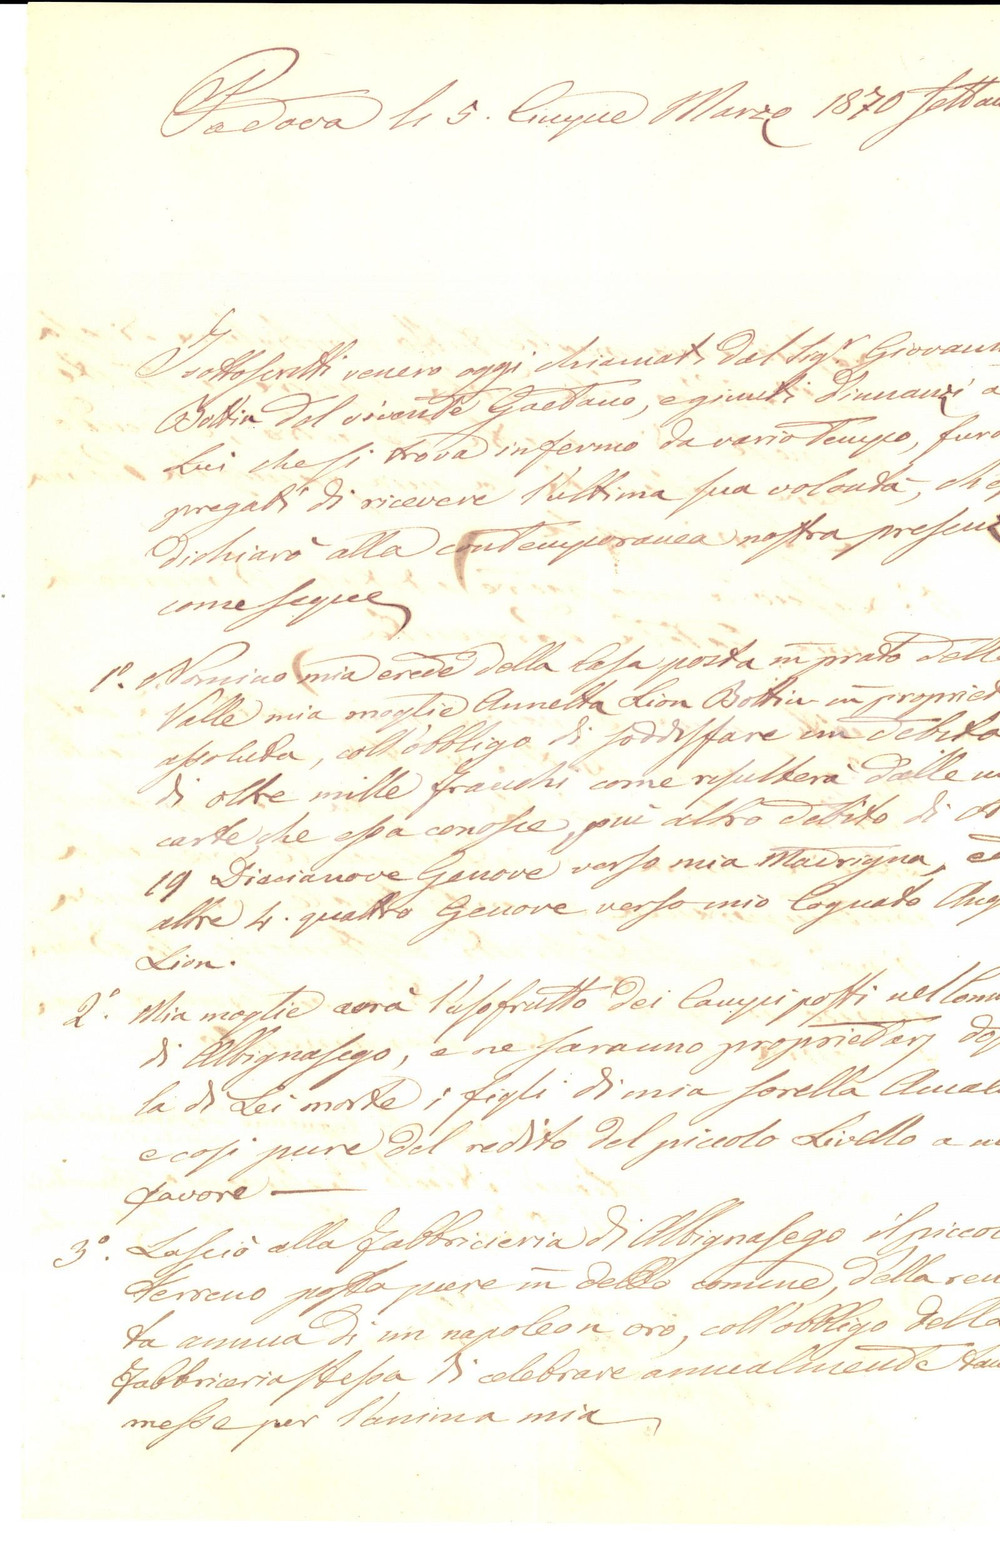 Padova li 5. Cinque Marzo 1870 Setta
I sottoscritti venero oggi chiamati dal Sigr Giovann
Bottin del vivente Gaetano, e giunti dinnanzi a
Lui che si trova infermo da vario tempo, furo
pregati di ricevere l'ultima sua volontà, ch'e
dichiarò alla contemporanea nostra presenz
come segue
1º. Nomino mia erede della Casa posta in prato della
Valle mia moglie Annetta Lion Bottin in propriet
assoluta, coll'obbligo di soddisfare un debito
di oltre mille franchi come risulterà dalle
carte che essa conosce, più altro debito di
19 Diecianove Genove verso mia Madrigna, ed
altre 4. quattro Genove verso mio Cognato Ang
Lion.
2º. Mia moglie avrà l'usofrutto dei Campi posti nel Comu
di Albignasego, e ne saranno proprietarj dop
la di Lei morte i figli di mia sorella Amal
e così pure del redito del piccolo Livello a m
favore —
3º. Lascio alla Fabbricieria di Albignasego il piccol
terreno posto pure in detto comune, della ren
ta annua di un napoleon oro, coll'obbligo della
Fabbriceria stessa di celebrare annualmente tan
messe per l'anima mia